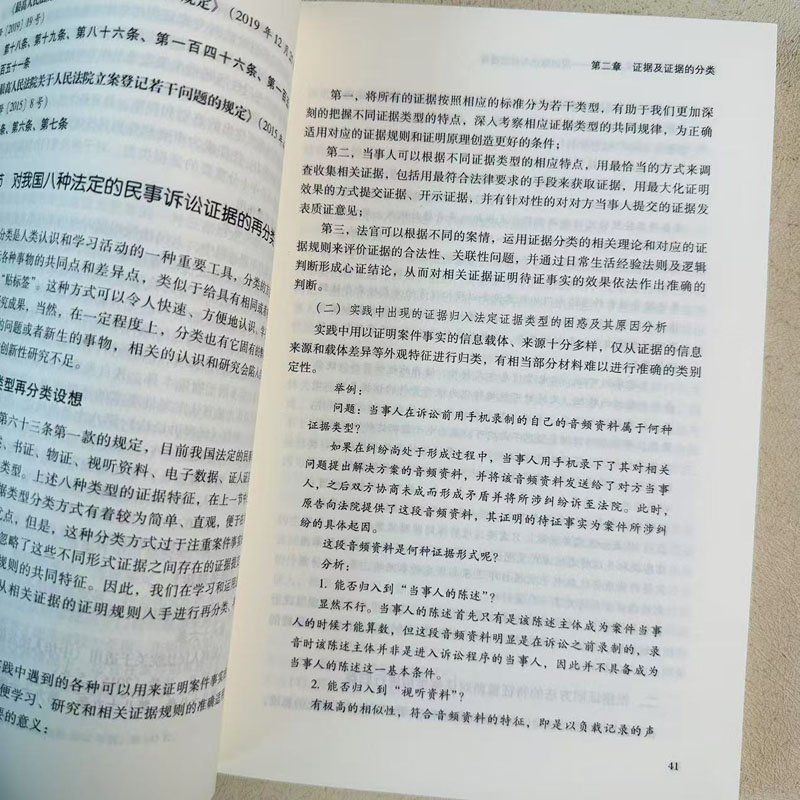 《最高人民法
规定》（2019年12月2
［2019］19号
第十八条、第十九条、第八十六条、第一百四十六条、第一百五
百五十一条
最高人民法院关于人民法院立案登记若干问题的规定》（2015年
（2015）8号
条、第六条、第七条
节 对我国八种法定的民事诉讼证据的再分类
分类是人类认识和学习活动的一种重要工具，分类的
各种事物的共同点和差异点，类似于给具有相同或
“贴标签”。这种方式可以令人快速、方便地认识、学
究成果，当然，在一定程度上，分类也有它固有的
的问题或者新生的事物，相关的认识和研究会陷入
创新性研究不足。
类型再分类设想
第六十三条第一款的规定，目前我国法定的民
、书证、物证、视听资料、电子数据、证人证
类型。上述八种类型的证据特征，在上一节
据类型分类方式有着较为简单、直观，便于
优点，但是，这种分类方式过于注重案件事实
忽略了这些不同形式证据之间存在的证据提
规则的共同特征。因此，我们在学习和运用
从相关证据的证明规则入手进行再分类，
实践中遇到的各种可以用来证明案件事实
便学习、研究和相关证据规则的准确适
要的意义：
第二章 证据及证据的分类
第一，将所有的证据按照相应的标准分为若干类型，有助于我们更加深
刻的把握不同证据类型的特点，深入考察相应证据类型的共同规律，为正确
适用对应的证据规则和证明原理创造更好的条件；
第二，当事人可以根据不同证据类型的相应特点，用最恰当的方式来调
查收集相关证据，包括用最符合法律要求的手段来获取证据，用最大化证明
效果的方式提交证据、开示证据，并有针对性的对对方当事人提交的证据发
表质证意见；
第三，法官可以根据不同的案情，运用证据分类的相关理论和对应的证
据规则来评价证据的合法性、关联性问题，并通过日常生活经验法则及逻辑
判断形成心证结论，从而对相关证据证明待证事实的效果依法作出准确的
判断。
（二）实践中出现的证据归入法定证据类型的困惑及其原因分析
实践中用以证明案件事实的信息载体、来源十分多样，仅从证据的信息
来源和载体差异等外观特征进行归类，有相当部分材料难以进行准确的类别
定性。
举例：
问题：当事人在诉讼前用手机录制的自己的音频资料属于何种
证据类型？
如果在纠纷尚处于形成过程中，当事人用手机录下了其对相关
问题提出解决方案的音频资料，并将该音频资料发送给了对方当事
人，之后双方协商未成而形成矛盾并将所涉纠纷诉至法院。此时，
原告向法院提供了这段音频资料，其证明的待证事实为案件所涉纠
纷的具体起因。
这段音频资料是何种证据形式呢？
分析：
1. 能否归入到“当事人的陈述”？
显然不行。当事人的陈述首先只有是该陈述主体成为案件当事
人的时候才能算数，但这段音频资料明显是在诉讼之前录制的，录
音时该陈述主体并非是进入诉讼程序的当事人，因此并不具备成为
当事人的陈述这一基本条件。
2. 能否归入到“视听资料”？
有极高的相似性，符合音频资料的特征，即是以负载记录的声
41